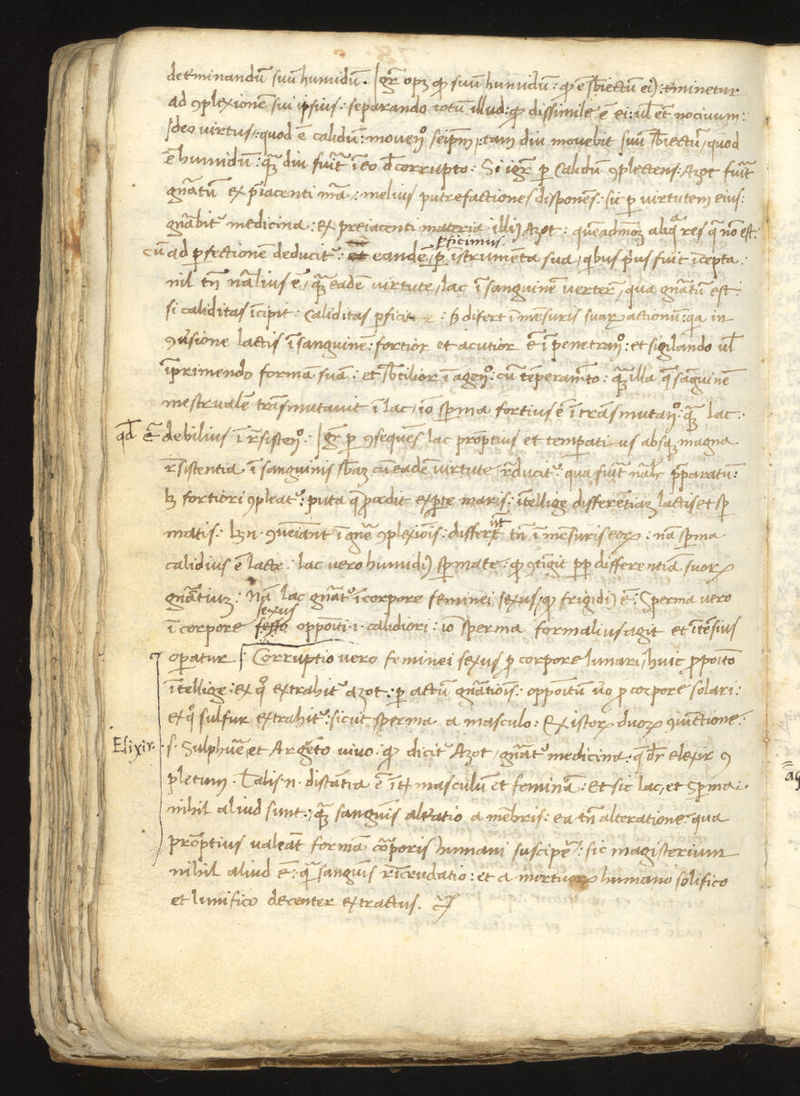 determinandũ suũ humidũ. Igr̃ opʒ ꝙ suũ humidũ: ꝙ ẽ sb̃iectũ ei): tminetur
ad ꝯplexionẽ sui ipsius: separando totũ illud: ꝙ dissimile ẽ ei: ul̃ et̃ nocivum:
Ideo virtus, quod ẽ calidũ: movenˀ. seip̃m: tam diu movebit suũ sb̃iectũ, quod
ẽ humidũ: qʒ̃ diu fuit̃ ĩ eo corrupto: Si igr̃ ꝑ Calidũ ꝯplectens: Azot fuit̃
gnãtũ ex p̃iacenti mã: melius putrefactiones disponẽs: sic ꝑ virtutem eius:
gnãbitˀ medicina: ex preiacenti materia illi) Azot: quẽadmoʒ res q̃ nõ est:
perficimus
cũ ad ꝑfectionẽ deducitˀ: eandẽ, ꝑ istrumẽta sua, qibus p̃us fuit ĩcepta.
nil tñ nãlius ẽ, qʒ̃ eadẽ virtute, lac ĩ sanguinẽ verter̃, qua gnãtũ est:
si caliditas ĩcipit: Caliditas ꝑficit: s̃ difert ĩ mẽsuris suaꝝ actionũ: qia in
ꝯṽsione lactis ĩ sanguinẽ: fortior et acutior ẽ ĩ penetranˀ: et sigilando ul̃
ĩprimendo formã suã: et sb̃tilior ĩ agenˀ: cũ tẽperamt̃o: qʒ̃ illa q̃ sãguinẽ
mẽstrualẽ trãsmutavit ĩ lac, io sp̃ma fortius ẽ ĩ trãsmutanˀ: qʒ̃ lac:
qd̃ ẽ debilius ĩ r̃sistenˀ. Igr̃ ꝑ ꝯseqũes lac prõptius et temperatius absqʒ magna
r̃sistentia ĩ sanguinis sb̃aʒ cũ eadẽ virtute r̃ducitˀ: qua fuit̃ nãlr̃ p̃paratũ:
lʒ fortiori ꝯpleatˀ: puta q̃ p̃cedit ex ꝑte maris: ĩtellige differẽtiaʒ lactis et sp̃
matis: lʒ.n. ꝯveniãnt ĩ gnẽ ꝯplexiõis: differũt tñ ĩ mẽsuris eoꝝ: nã sp̃ma
calidius ẽ lacte: lac vero humidi) sp̃mate: ꝙ ꝯtigit ꝓp̃ differentiã suoꝝ
gnãtiuʒ: Nã lac gnãtˀ ĩ corpore feminei sexus, qˀ frigidi) ẽ: Sperma vero
sexus
ĩ corpore oppoiti .i. calidiori: io sperma formalius agit et ĩtẽsius
operatur. Corruptio vero feminei sexus ꝑ corpore lunari, huic ꝓpoito
ĩtellige: ex qˀ extrahitˀ azot: ꝑ actũ gnãtiõis: oppoitũ ṽo ꝑ corpore solari:
ex qˀ sulfur extrahitˀ: sicut sperma a masculo: Ex istoꝝ duoꝝ ꝯiũctione:
Elixir. s. Sulphure et Argẽto vivo. ꝙ dicitˀ Azot, gnãtˀ medicina: q̃ dr̃ elexir ꝯ
pletum. Talis .n. distãtia ẽ ĩt masculũ et feminã: Et sic lac, et sp̃ma:
nihil aliud sunt, qʒ̃ sanguĩs altatio a mẽbris: ea tñ alteratione qua
prõptius valeãt formã corꝑoris humani suscipẽ: sic magisterium
nihil aliud ẽ: qʒ̃ sanguĩs r̃icrudatio: et a mortuoꝝ humano solifico
et lunifico decenter extractus.